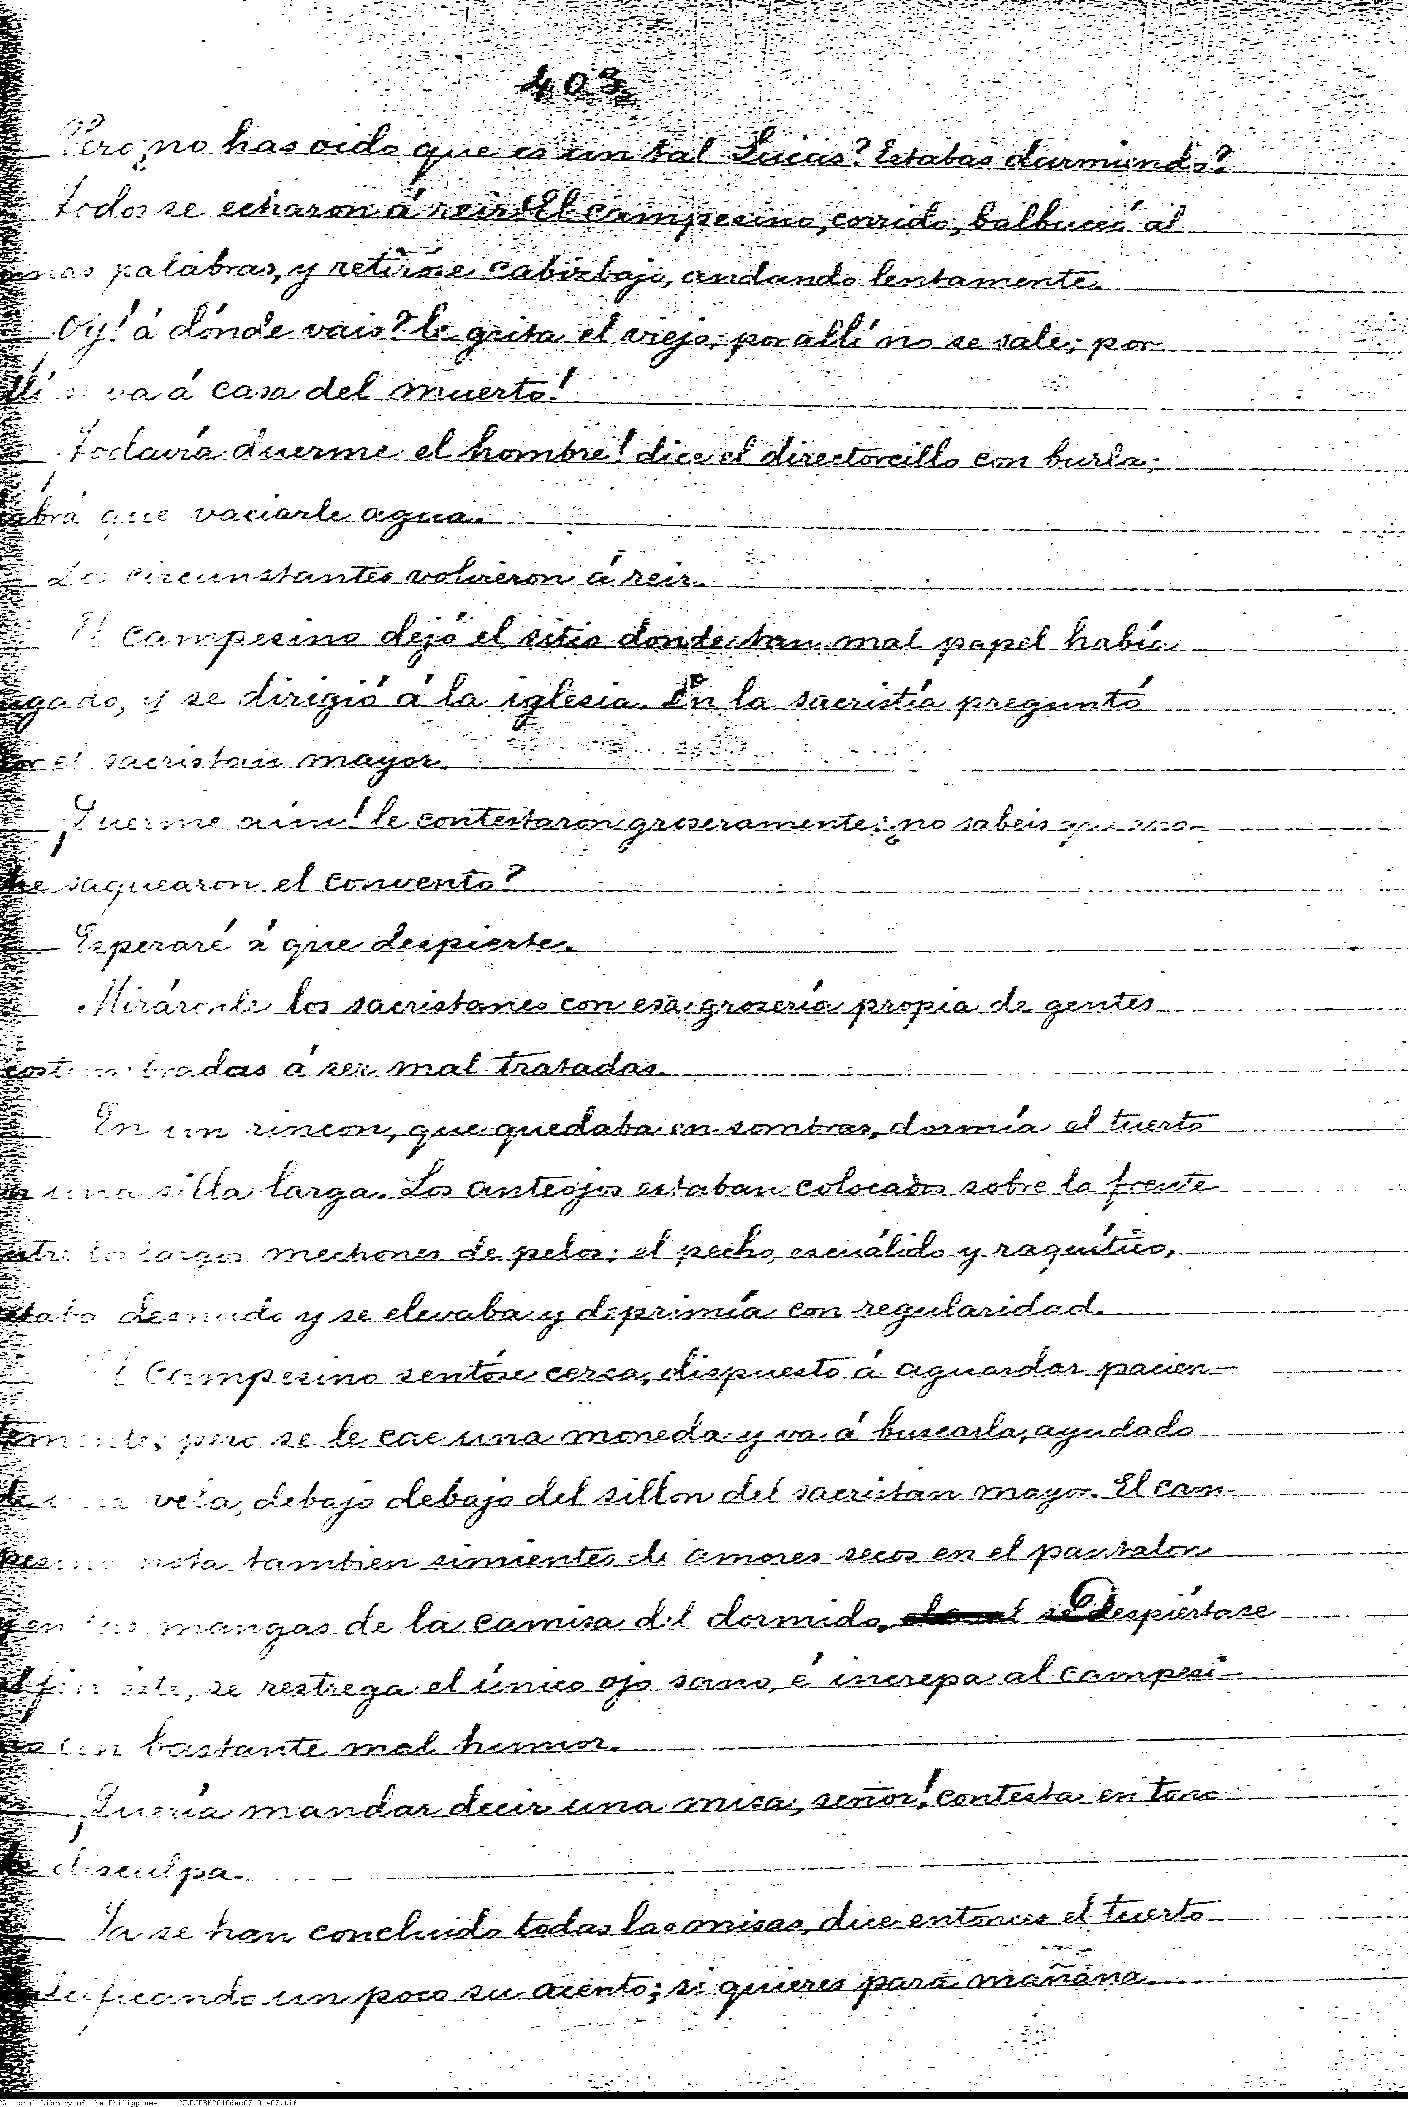 403
Pero ¿no has oido que es un tal Lucas? Estabas durmiendo?
Todos se echaron á reir. El campesino, corrido, balbuceó al
unas palabras, y retiróse cabizbajo, andando lentamente.
Oy! á dónde vais? le grita el viejo; por allí no se sale; por
allí se va á casa del muerto!
Todavía duerme el hombre! dice el directorcillo con burla;
habrá que vaciarle agua.
Los circunstantes volvieron á reir.
El campesino dejó el sitio donde tan mal papel había
jugado, y se dirigió á la iglesia. En la sacristía preguntó
por el sacristan mayor.
¡Duerme aún! le contestaron groseramente; ¿no sabeis que ano-
che saquearon el convento?
Esperaré á que despierte.
Miráronle los sacristanes con esa grosería propia de gentes
acostumbradas á ser mal tratadas.
En un rincon, que quedaba en sombras, dormía el tuerto
en una silla larga. Los anteojos estaban colocados sobre la frente
entre los largos mechones de pelos; el pecho, escuálido y raquítico,
estaba desnudo y se elevaba y deprimía con regularidad.
El campesino sentóse cerca, dispuesto á aguardar pacien-
temente; pero se le cae una moneda y va á buscarla, ayudado
de una vela, debajo debajo del sillon del sacristan mayor. El cam-
pesino nota tambien simientes de amores secos en el pantalon
y en las mangas de la camisa del dormido, se Despiértase
al fin éste, se restrega el único ojo sano, é increpa al campesi-
no con bastante mal humor.
¡Quería mandar decir una misa, señor! contesta en tono
de disculpa.
Ya se han concluido todas las misas, dice entonces el tuerto
dulcificando un poco su acento; si quieres para mañana